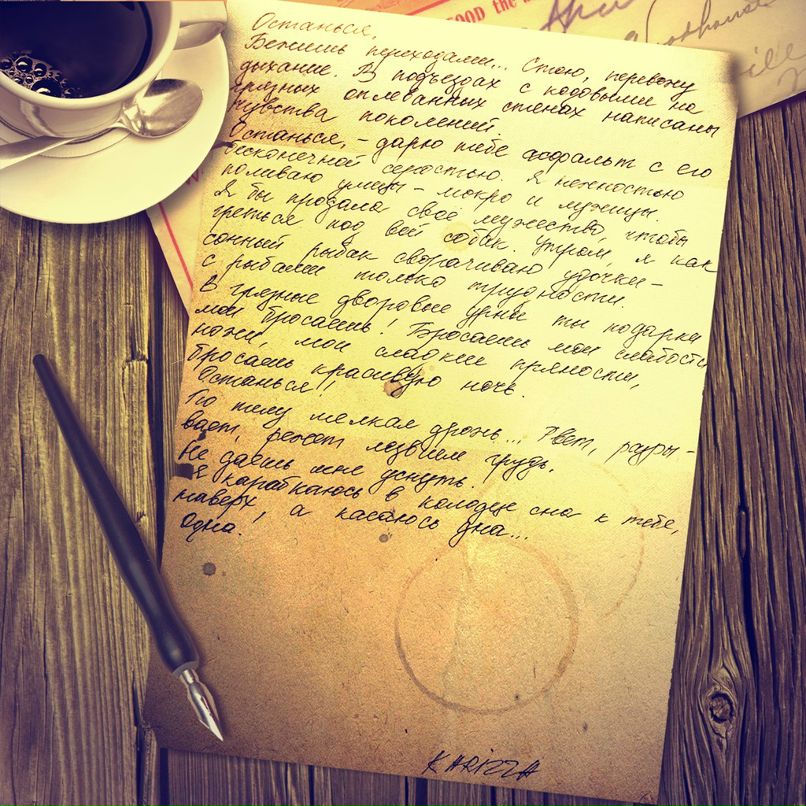 OOD the
Останься,
Бежишь переходами... Стою, перевожу
дыхание. В подъездах с кодовыми на
грязных оплеванных стенах написаны
чувства поколений.
Останься, - дарю тебе асфальт с его
бесконечной серостью. Я нежностью
поливаю улицы - мокро и лужицы.
Я бы продала свое мужество, чтобы
греться под вой собак. Утром я как
сонный рыбак сворачиваю удочки -
с рыбами только трудности.
В грязные дворовые урны ты подарки
мои бросаешь! Бросаешь мои слабости,
ножи, мои сладкие пряности,
бросаешь красивую ночь.
Останься!
По телу мелкая дрожь... Рвет, разры-
вает, режет лезвием грудь.
Не даешь мне уснуть.
Я карабкаюсь в колодце сна к тебе,
наверх, а касаюсь дна...
Одна.
KARIZZA